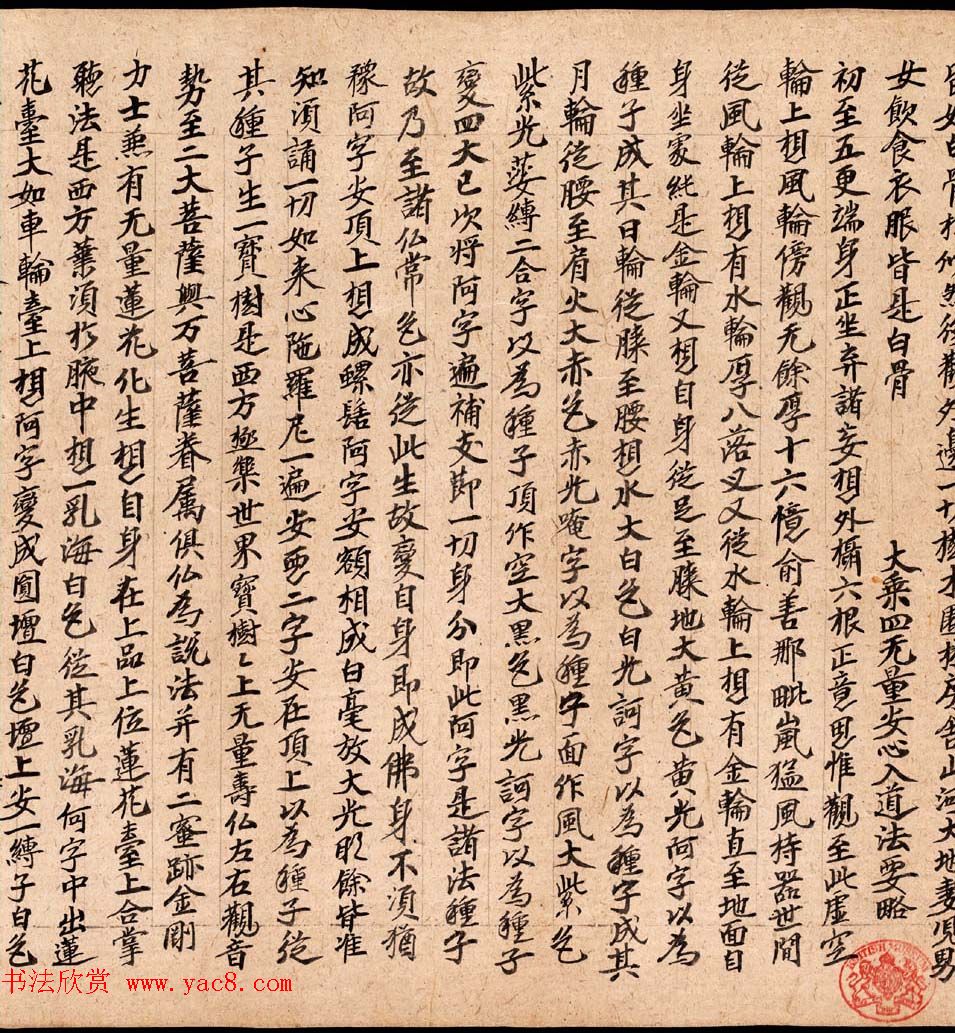 皆如白骨相似然後觀外邊一切樹木園林房舍山河大地妻兒男
女飲食衣服皆是白骨
大乘四无量安心入道法要略
初至五更端身正坐弃諸妄想外攝六根正意思惟觀至此虛空
輪上想風輪傍觀无餘厚十六憶俞善那毗嵐猛風持器世間
從風輪上想有水輪厚八落叉又從水輪上想有金輪直至地面自
身坐處純是金輪又想自身從足至膝地大黃色黃光阿字以為
種子成其日輪從膝至腰想水大白色白光訶字以為種字成其
月輪從腰至肩火大赤色赤光唵字以為種字面作風大紫色
紫光莎縛二合字以為種子頂作空大黑色黑光訶字以為種子
變四大已次將阿字遍補支節一切身分即此阿字是諸法種字
故乃至諸仏常色亦從此生故變自身即成佛身不須猶
穄阿字安頂上想成螺髻阿字安額相成白毫放大光明餘皆准
知須誦一切如来心陁羅尼一遍安惡二字安在頂上以為種子從
其種子生一寶樹是西方極樂世界寶樹〻上无量壽仏左右觀音
勢至二大菩薩與万菩薩眷属俱仏為說法并有二蜜跡金剛
力士兼有无量蓮花化生想自身在上品上位蓮花臺上合掌
聽法是西方業須於腋中想一乳海白色從其乳海何字中出蓮
花臺大如車輪臺上想阿字變成圓壇白色壇上安一縛子白色
BRITISH MUSEUM
书法欣赏 www.yac8.com